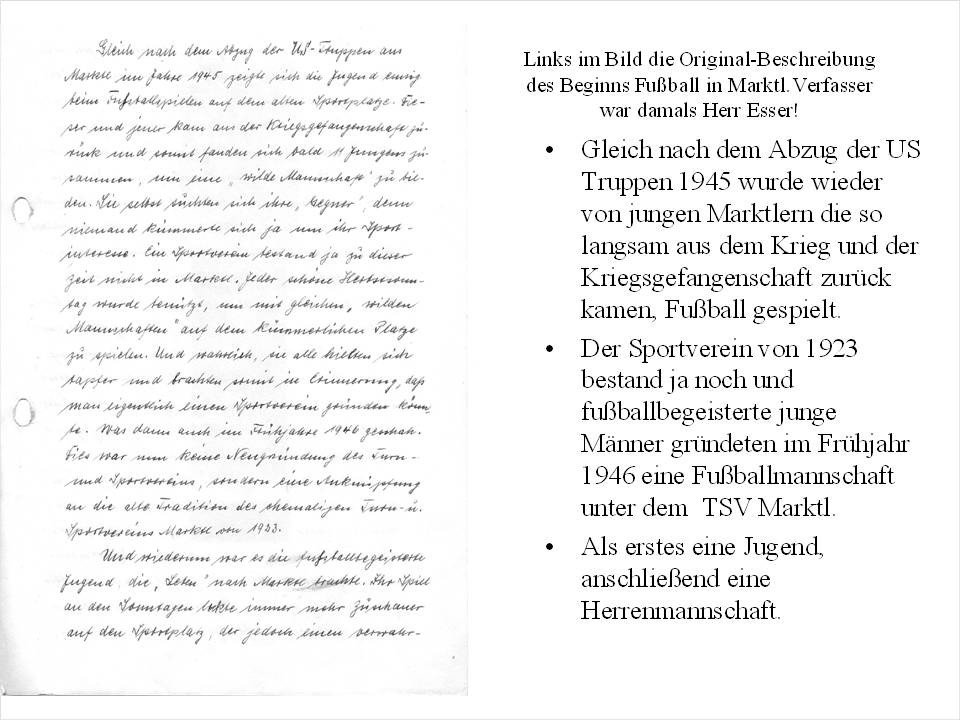 Gleich nach dem Abzug der US-Truppen aus
Marktl im Jahre 1945 zeigte sich die Jugend eifrig
beim Fußballspielen auf dem alten Sportplatze. Die-
ser und jener kam aus der Kriegsgefangenschaft zu-
rück und somit fanden sich bald 11 Jungens zu-
sammen, um eine „wilde Mannschaft" zu bil-
den. Sie selbst suchten sich ihre „Gegner", denn
niemand kümmerte sich ja um ihr Sport-
interesse. Ein Sportverein bestand ja zu dieser
Zeit nicht in Marktl. Jeder schöne Herbstsonn-
tag wurde benützt, um mit gleichen „wilden
Mannschaften" auf dem kümmerlichen Platze
zu spielen. Und wahrlich, sie alle hielten sich
tapfer und brachten somit in Erinnerung, daß
man eigentlich einen Sportverein gründen könn-
te. Was dann auch im Frühjahre 1946 geschah.
Dies war nun keine Neugründung des Turn-
und Sportvereins, sondern eine Anknüpfung
an die alte Tradition des ehemaligen Turn- u.
Sportvereins Marktl von 1923.
Und wiederum war es die fußballbegeisterte
Jugend, die „Leben" nach Marktl brachte. Ihr Spiel
an den Sonntagen lockte immer mehr Zuschauer
auf den Sportplatz, der jedoch einen verwahr-
Links im Bild die Original-Beschreibung
des Beginns Fußball in Marktl. Verfasser
war damals Herr Esser!
• Gleich nach dem Abzug der US
Truppen 1945 wurde wieder
von jungen Marktlern die so
langsam aus dem Krieg und der
Kriegsgefangenschaft zurück
kamen, Fußball gespielt.
• Der Sportverein von 1923
bestand ja noch und
fußballbegeisterte junge
Männer gründeten im Frühjahr
1946 eine Fußballmannschaft
unter dem TSV Marktl.
• Als erstes eine Jugend,
anschließend eine
Herrenmannschaft.